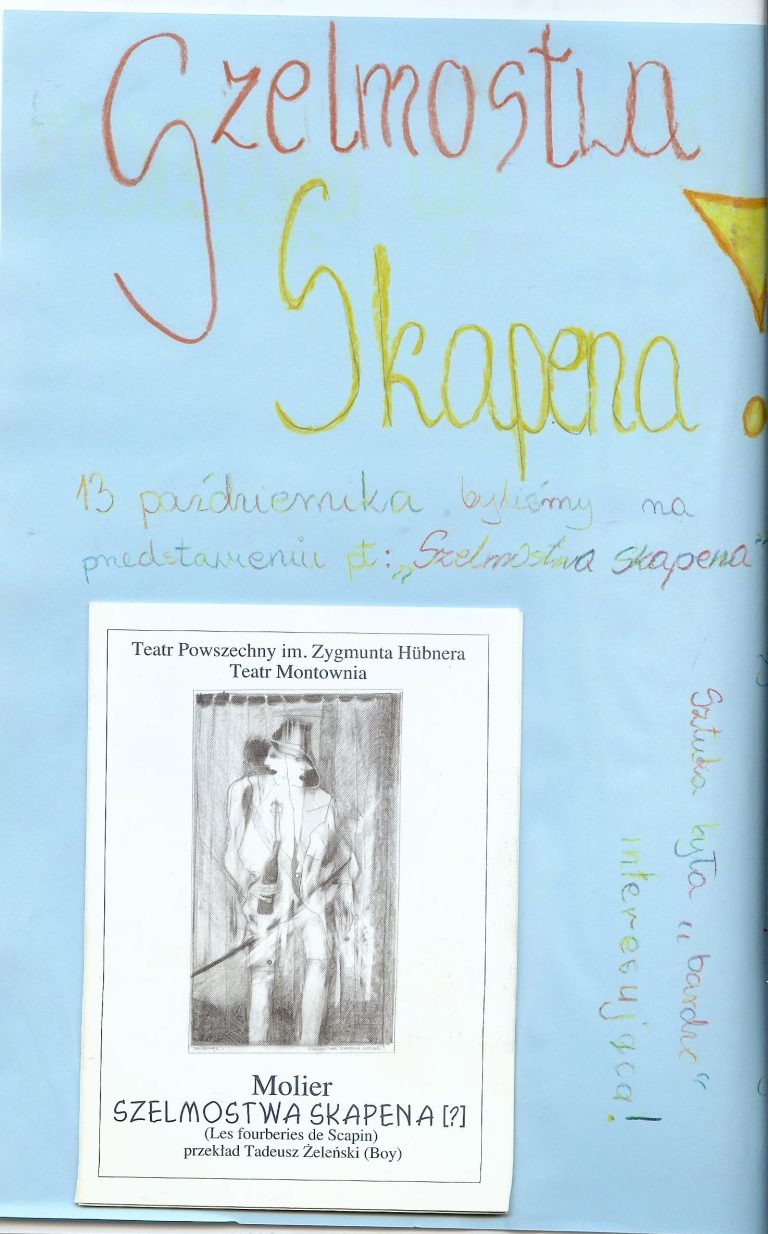 Szelmostwa
Skapena!
13 października byliśmy na
predstawieniu pt: „Szelmostwa skapena”
Teatr Powszechny im. Zygmunta Hübnera
Teatr Montownia
Molier
SZELMOSTWA SKAPENA [?]
(Les fourberies de Scapin)
przekład Tadeusz Żeleński (Boy)
Sztuka była „bardzo”
interesująca!